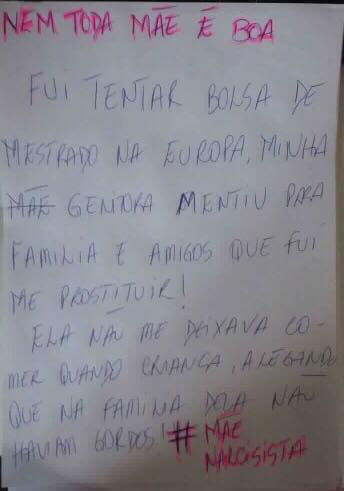 NEM TODA MÃE É BOA
FUI TENTAR BOLSA DE
MESTRADO NA EUROPA, MINHA
MÃE GENITORA MENTIU PARA
FAMILIA E AMIGOS QUE FUI
ME PROSTITUIR!
ELA NÃO ME DEIXAVA CO-
MER QUANDO CRIANÇA, ALEGANDO
QUE NA FAMINA DELA NÃO
HAVIAM GORDOS! # MÃE
NARCISISTA